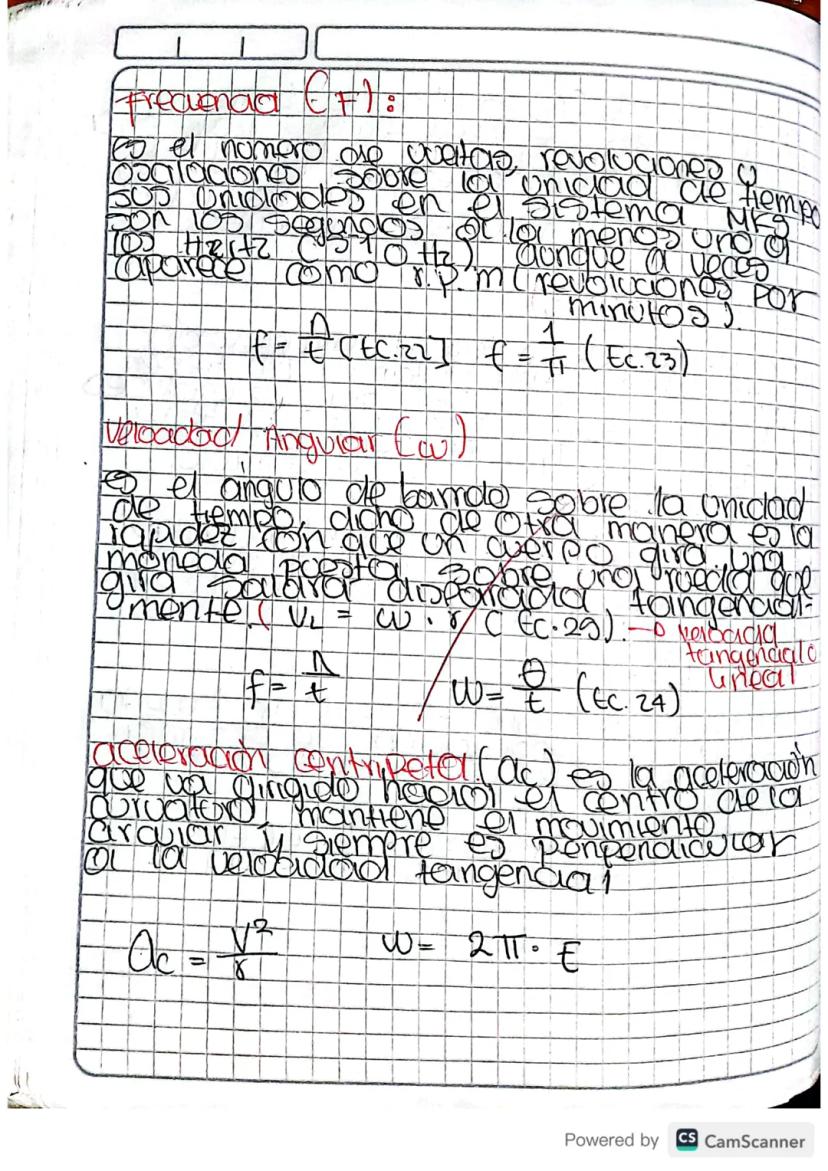 frecuencia (F):
es el numero de vueltas, revoluciones y
oscilaciones sobre la unidad de tiempo
sus unidades en el sistema MKS
son los segundos a la menos uno o
los Hertz (s-1 o Hz) aunque a veces
aparece como r.p.m (revoluciones por
minutos).
f = n/t [Ec.22] f = 1/π (Ec.23)
Velocidad Angular (ω)
es el ángulo de barrido sobre la unidad
de tiempo, dicho de otra manera es la
rapidez con que un cuerpo gira, una
moneda puesta sobre una rueda que
gira saldrá disparada tangencial-
mente. (VL = ω . r (Ec.29). → velocidad
tangencial o
lineal
f = n/t W = θ/t (Ec.24)
aceleración centripeta (ac) es la aceleración
que va dirigido hacia el centro de la
curvatura, mantiene el movimiento
circular y siempre es perpendicular
a la velocidad tangencial
ac = V²/r w = 2π · F